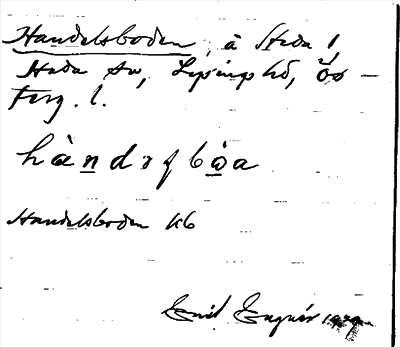 Handelsboden, å Heda 1,
Heda sn, Lysings hd, Ög –
Terg. l.
hà̱n̠dəʃbω̱a
Handelsboden kb
Emil Eugnér